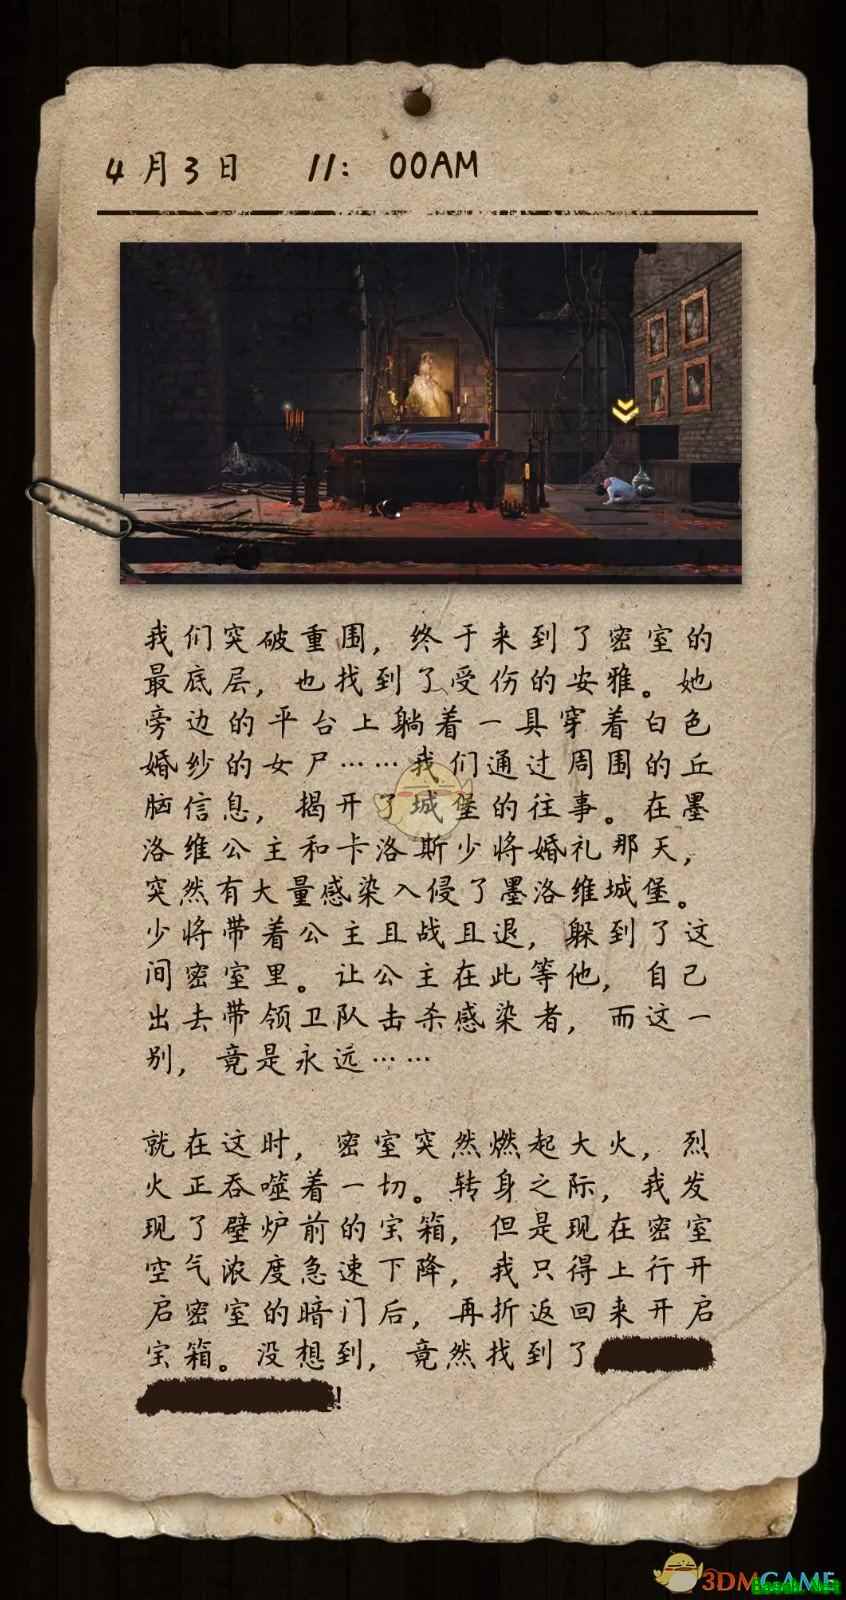 4月3日 11: 00AM
我们突破重围,终于来到了密室的
最底层,也找到了受伤的安雅。她
旁边的平台上躺着一具穿着白色
婚纱的女尸……我们通过周围的丘
脑信息,揭开了城堡的往事。在墨
洛维公主和卡洛斯少将婚礼那天,
突然有大量感染入侵了墨洛维城堡。
少将带着公主且战且退,躲到了这
间密室里。让公主在此等他,自己
出去带领卫队击杀感染者,而这一
别,竟是永远……
就在这时,密室突然燃起大火,烈
火正吞噬着一切。转身之际,我发
现了壁炉前的宝箱,但是现在密室
空气浓度急速下降,我只得上行开
启密室的暗门后,再折返回来开启
宝箱。没想到,竟然找到了
!
3DMGAME